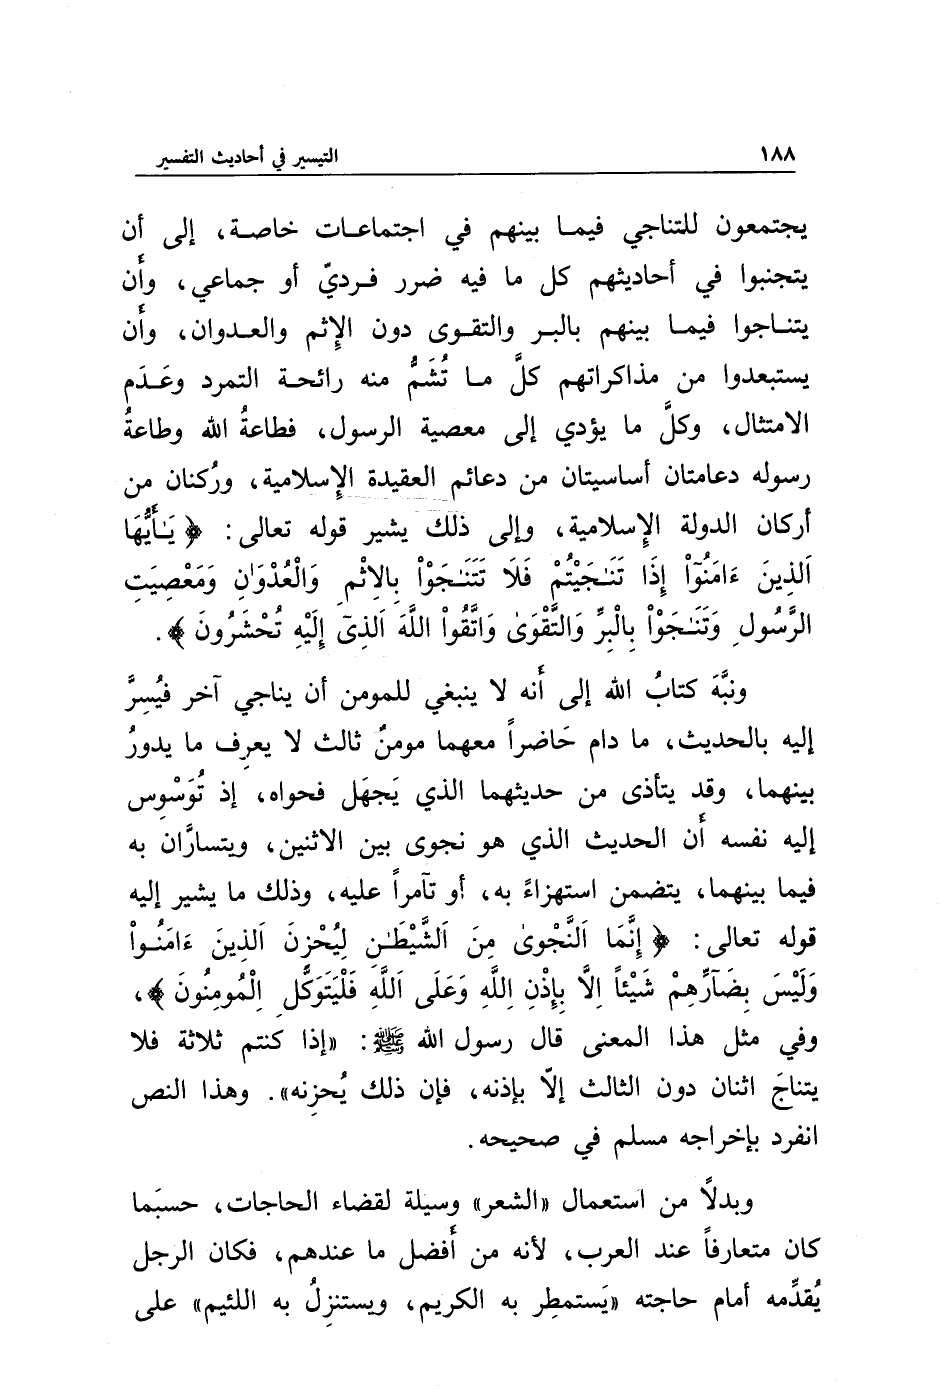 ١٨٨ التيسير في أحاديث التفسير
يجتمعون للتناجي فيما بينهم في اجتماعات خاصة، إلى أن
يتجنبوا في أحاديثهم كل ما فيه ضرر فرديّ أو جماعي، وأن
يتناجوا فيما بينهم بالبر والتقوى دون الإثم والعدوان، وأن
يستبعدوا من مذاكراتهم كلَّ ما تُشَمُّ منه رائحة التمرد وعَدَم
الامتثال، وكلَّ ما يؤدي إلى معصية الرسول، فطاعةُ الله وطاعةُ
رسوله دعامتان أساسيتان من دعائم العقيدة الإسلامية، ورُكنان من
أركان الدولة الإسلامية، وإلى ذلك يشير قوله تعالى: ﴿ يَـٰأَيُّهَا
اَلذِينَ ءَامَنُوٓاْ إِذَا تَنَـٰجَيْتُمْ فَلَا تَتَنَـٰجَوْاْ بِالِاثْمِ وَالْعُدْوَانِ وَمَعْصِيَتِ
الرَّسُولِ وَتَنَـٰجَوْاْ بِالْبِرِّ وَالتَّقْوَىٰ وَاتَّقُواْ اللَّهَ اَلذِىٓ إِلَيْهِ تُحْشَرُونَ ﴾.
ونبَّهَ كتابُ الله إلى أَنه لا ينبغي للمومن أن يناجي آخر فيُسِرَّ
إليه بالحديث، ما دام حَاضراً معهما مومنٌ ثالث لا يعرِف ما يدورُ
بينهما، وقد يتأذى من حديثهما الذي يَجهَل فحواه، إذ تُوَسْوِس
إليه نفسه أَن الحديث الذي هو نجوى بين الاثنين، ويتسارَّان به
فيما بينهما، يتضمن استهزاءً به، أو تآمراً عليه، وذلك ما يشير إليه
قوله تعالى: ﴿ إِنَّمَا اَلنَّجْوىٰ مِنَ اَلشَّيْطَـٰنِ لِيُحْزِنَ اَلذِينَ ءَامَنُواْ
وَلَيْسَ بِضَآرِّهِمْ شَيْئاً اِلَّا بِإِذْنِ اِللَّهِ وَعَلَى اَللَّهِ فَلْيَتَوَكَّلِ اِلْمُومِنُونَ ﴾،
وفي مثل هذا المعنى قال رسول الله ﷺ: «إذا كنتم ثلاثة فلا
يتناجَ اثنان دون الثالث إلاّ بإذنه، فإن ذلك يُحزِنه». وهذا النص
انفرد بإخراجه مسلم في صحيحه.
وبدلًا من استعمال «الشعر» وسيلة لقضاء الحاجات، حسبَما
كان متعارفاً عند العرب، لأنه من أَفضل ما عندهم، فكان الرجل
يُقدِّمه أمام حاجته «يَستمطِر به الكريم، ويستنزِلُ به اللئيم» على